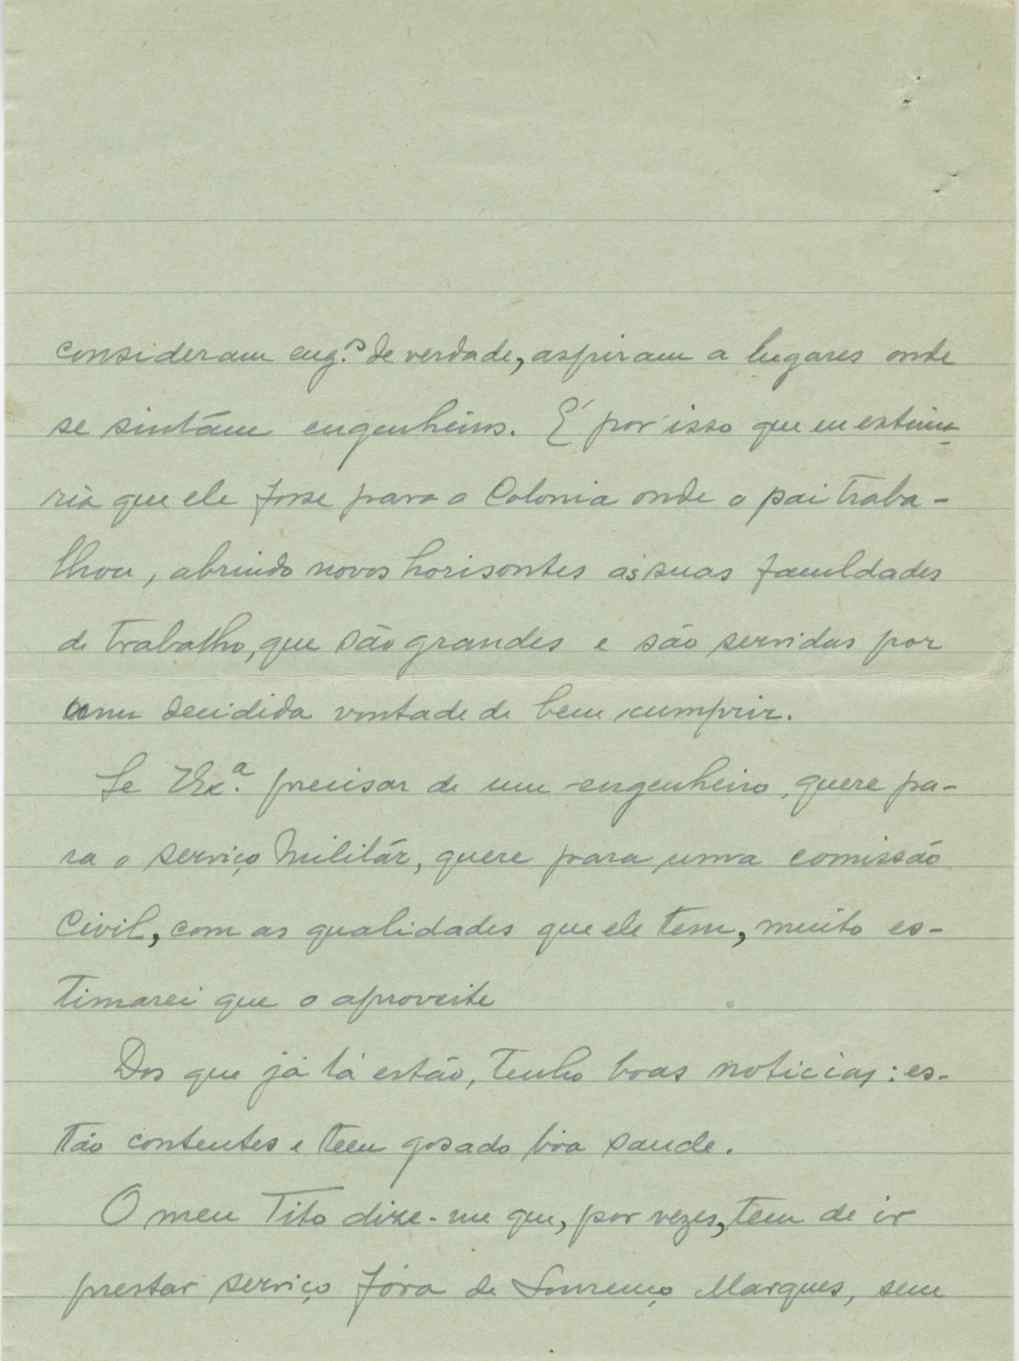 consideram eng.os de verdade, aspiram a lugares onde
se sintám engenheiros. É por isso que eu estima-
ria que ele fosse para a Colonia onde o pai traba-
lhou, abrindo novos horisontes ás suas faculdades
de trabalho, que são grandes e são servidas por
uma decidida vontade de bem cumprir.
Se V.Ex.ª precisar de um engenheiro, quere pa-
ra o serviço Militár, quere para uma comissão
Civil, com as qualidades que ele tem, muito es-
timarei que o aproveite
Dos que já lá estão, tenho boas noticias: es-
tão contentes e teem gosado bôa saude.
O meu Tito dize-me que, por vezes, tem de ir
prestar serviço fóra de Lourenço Marques, sem